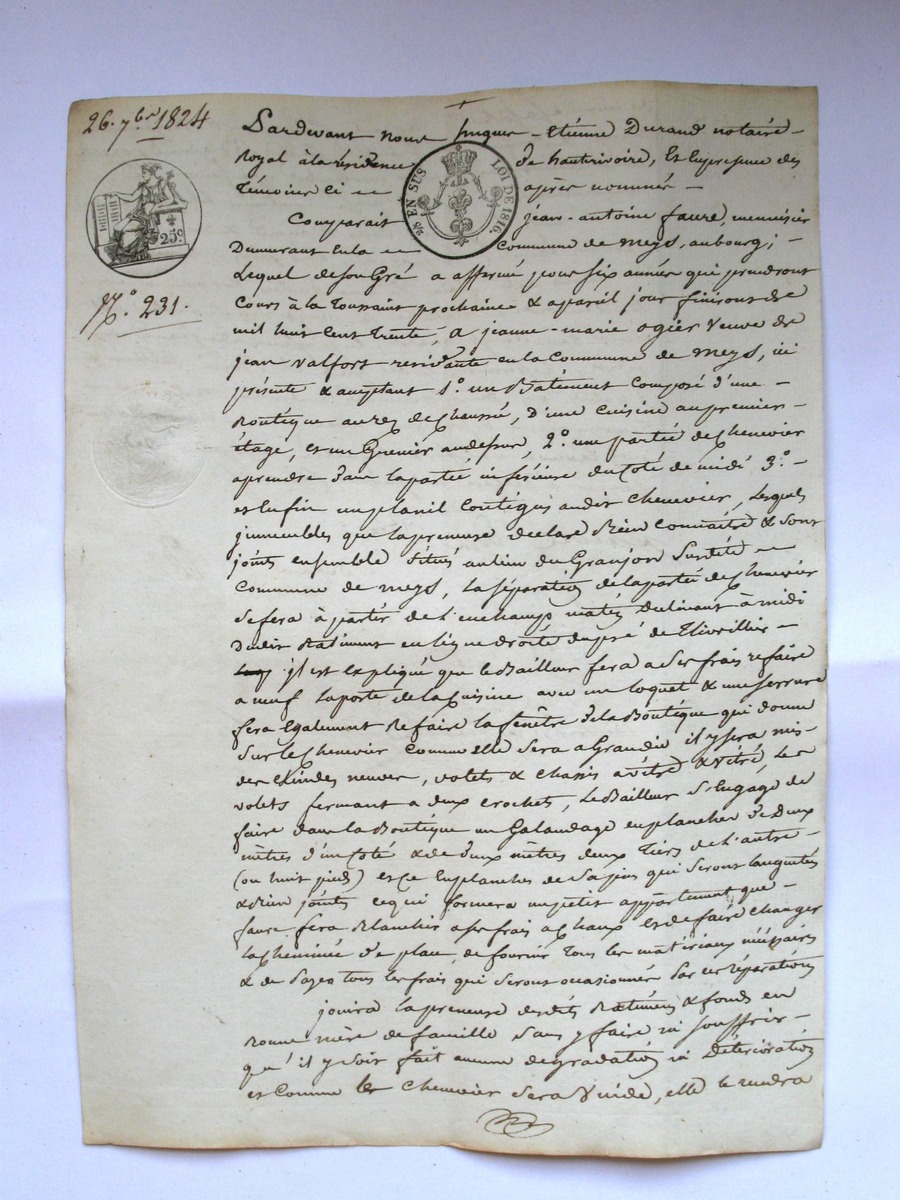 26. 7bre 1824
25c
N.° 231.
EN SUS
LOI DE 1816.
Pardevant nous Jacques-Etienne Durand notaire
Royal à la résidence de hauterivoire, et en presence des
témoins ci après nommés
Comparait jean-antoine faure, menuisier
Demeurant en la Commune de Meys, au bourg;
Lequel de son Gré a affermé pour six années qui prendront
cours à la toussaint prochaine & a pareil jour finiront de
mil huit cent trente, a jeanne-marie ogier veuve de
jean Valfort residante en la Commune de Meys, ici
présente & acceptant 1.° un Batiment composé d'une
Boutique au rez de chaussé, d'une cuisine au premier
étage, et un Grenier au dessus, 2.° une partie de Chenevier
a prendre dans la partie inférieure du Coté de midi 3.°
et Enfin un planil Contigus audit Chenevier, Lesquels
immeubles que la preneuse declare Bien Connaitre & sont
joints ensemble situés au lieu du Granjon Susdite
Commune de meys, la séparation de la partie de Chenevier
se fera à partir de l' en champs matin Declinant à midi
Dudit Batiment en ligne droite du pré de
il est expliqué que le Bailleur fera a ses frais refaire
a neuf la porte de la Cuisine avec un loquet & une serrure
fera Egalement Refaire la fenêtre de la Boutique qui donne
Sur le Chenevier Comme elle Sera aGrandie il y sera mis
des neuves, volets & chassis a vitre & vitré, Les
volets fermant a deux crochets, Le Bailleur S'engage de
faire dans la Boutique un Galandage en plancher de Deux
mètres d'un Coté & de deux mètres deux tiers de l'autre
(ou huit pieds) et ce En planches de Sapin qui Seront languetés
& Bien joints ce qui formera un petit appartement que
faure fera Blanchir a ses frais a Chaux et de faire changer
la Cheminée de place, de fournir tous les matériaux nécessaires
& de Payer tous les frais qui Seront ocasionnés Par ces réparations
jouira la preneuse desdits Batiments & fonds en
Bonne mère de famille Sans y faire ni souffrir
qu'il y Soit fait aucune degradation ni Déterioration
et Comme le Chenevier Sera Vuide, elle le rendra